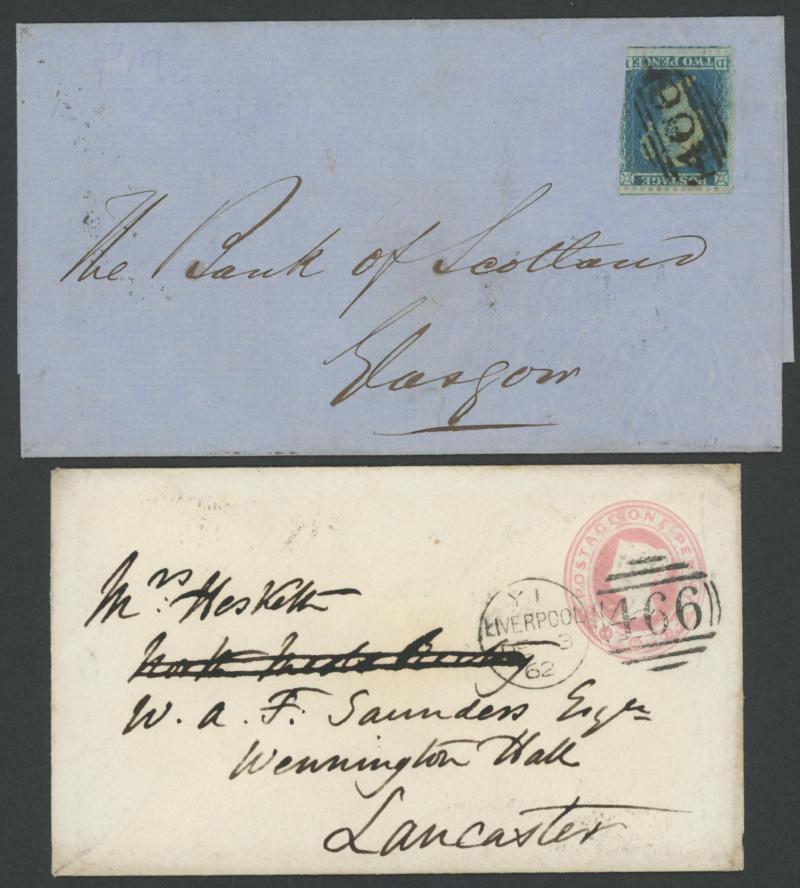 PM
D TWO PENCE I
POSTAGE
The Bank of Scotland
Glasgow
POSTAGE ONE PEN
Y I
LIVERPOOL
DE 3
62
466
Mrs. Hesketh
W. A. F. Saunders Esqre
Wennington Hall
Lancaster